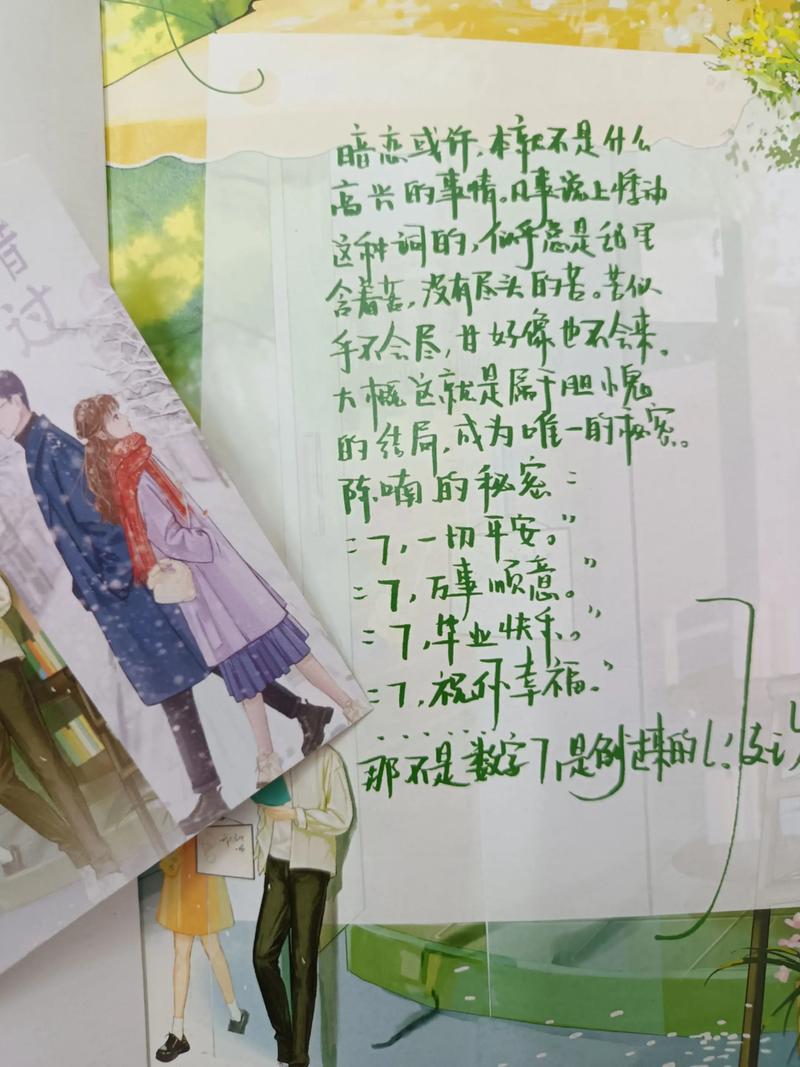 错过
暗恋或许,本就不是什么
高兴的事情。凡事说上悸动
这种词的,似乎总是那里
含着苦,没有尽头的苦。苦似
乎不会尽,甘好像也不会来。
大概这就是属于胆小鬼
的结局,成为唯一的秘密。
陈喃的秘密:
:7,一切平安。”
:7,万事顺意。”
:7,毕业快乐。”
:7,祝你幸福。”
......
那不是数字7,是倒过来的L!